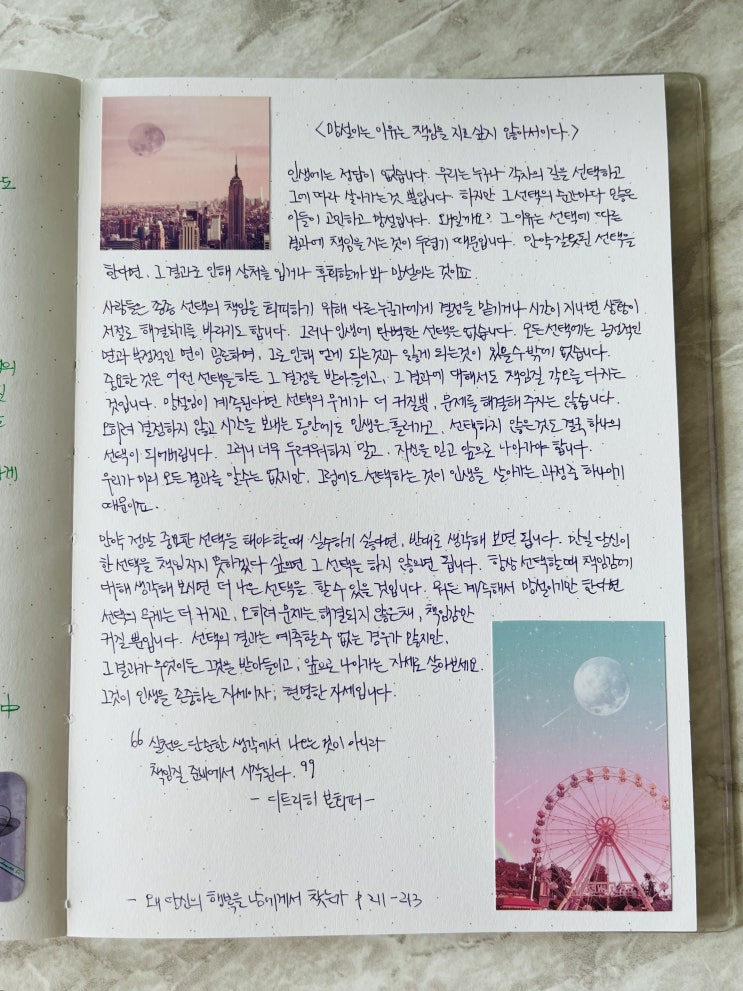 <망설이는 이유는 책임을 지고 싶지 않아서이다.>
인생에는 정답이 없습니다. 우리는 누구나 각자의 길을 선택하고
그에 따라 살아가는 것 뿐입니다. 하지만 그 선택의 순간마다 많은
이들이 고민하고 망설입니다. 왜일까요? 그 이유는 선택에 따른
결과에 책임을 지는 것이 두렵기 때문입니다. 만약 잘못된 선택을
한다면, 그 결과로 인해 상처를 입거나 후회할까 봐 망설이는 것이죠.
사람들은 종종 선택의 책임을 회피하기 위해 다른 누군가에게 결정을 맡기거나 시간이 지나면 상황이
저절로 해결되기를 바라기도 합니다. 그러나 인생에 완벽한 선택은 없습니다. 모든 선택에는 긍정적인
면과 부정적인 면이 공존하며, 그로 인해 얻게 되는 것과 잃게 되는 것이 있을 수밖에 없습니다.
중요한 것은 어떤 선택을 하든 그 결정을 받아들이고, 그 결과에 대해서도 책임질 각오를 다지는
것입니다. 망설임이 계속된다면 선택의 무게가 더 커질 뿐, 문제를 해결해 주지는 않습니다.
오히려 결정하지 않고 시간을 보내는 동안에도 인생은 흘러가고, 선택하지 않은 것도 결국 하나의
선택이 되어버립니다. 그러니 너무 두려워하지 말고, 자신을 믿고 앞으로 나아가야 합니다.
우리가 미리 모든 결과를 알 수는 없지만, 그럼에도 선택하는 것이 인생을 살아가는 과정 중 하나이기
때문이죠.
만약 정말 중요한 선택을 해야 할 때 실수하기 싫다면, 반대로 생각해 보면 됩니다. 만일 당신이
한 선택을 책임지지 못하겠다 싶으면 그 선택은 하지 않으면 됩니다. 항상 선택할 때 책임감에
대해 생각해 보시면 더 나은 선택을 할 수 있을 것입니다. 뭐든 계속해서 망설이기만 한다면
선택의 무게는 더 커지고, 오히려 문제는 해결되지 않은 채, 책임감만
커질 뿐입니다. 선택의 결과는 예측할 수 없는 경우가 많지만,
그 결과가 무엇이든 그것을 받아들이고, 앞으로 나아가는 자세로 살아보세요.
그것이 인생을 존중하는 자세이자, 현명한 자세입니다.
66 실천은 단순한 생각에서 나오는 것이 아니라
책임질 준비에서 시작된다. 99
- 디트리히 본회퍼 -
- 왜 당신의 행복을 남에게서 찾는가 p 211-213